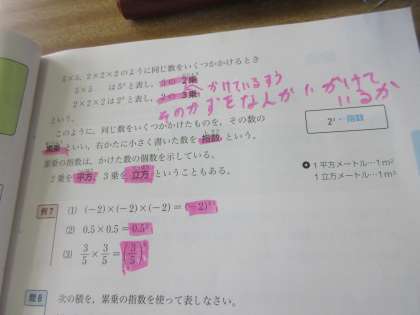 5×5，2×2×2のように同じ数をいくつかかけるとき
5×5　は5²と表し，5の2乗
2×2×2は2³と表し，2の3乗
かけているすう
そのかずをなんかいかけて
いるか
という。
このように，同じ数をいくつかかけたものを，その数の
累乗といい，右かたに小さく書いた数を指数という。
累乗の指数は，かけた数の個数を示している。
2乗を平方，3乗を立方ということもある。
2³…指数
1平方メートル…1m²
1立方メートル…1m³
例7 (1) (−2)×(−2)×(−2)＝(−2)³
(2) 0.5×0.5＝0.5²
(3) 3/5×3/5＝(3/5)²
問6 次の積を，累乗の指数を使って表しなさい。